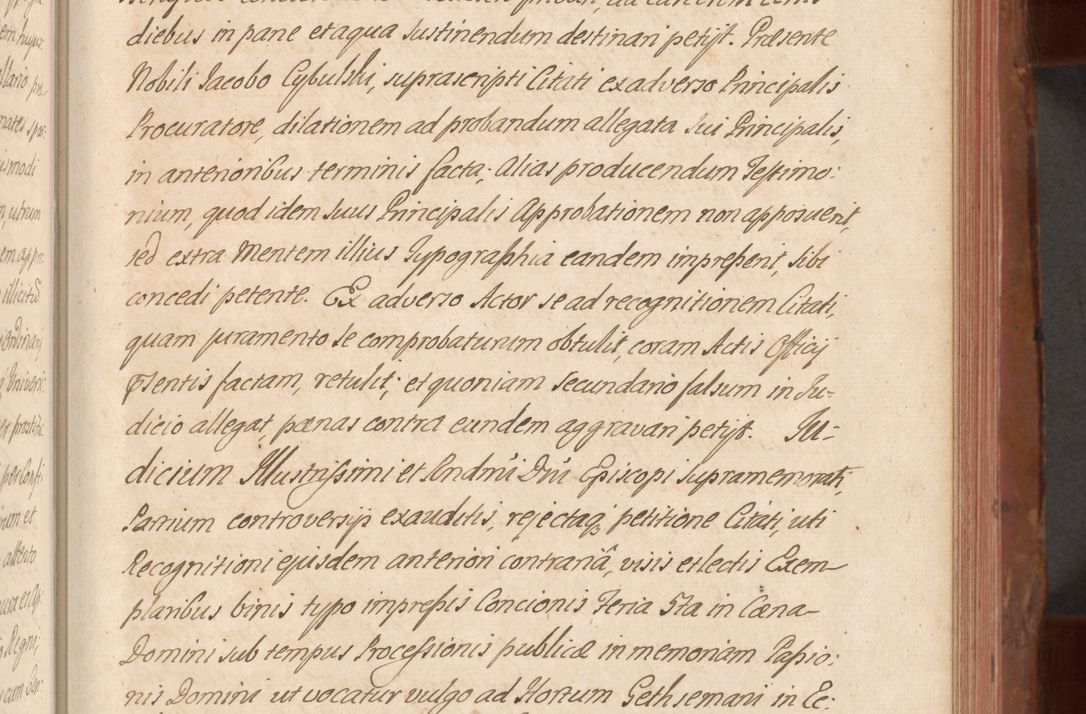 diebus in pane et aqua sustinendum destinari petijt. Præsente
Nobili Jacobo Cybulski, suprascripti Citati ex adverso Principalis
Procuratore, dilationem ad probandum allegata sui Principalis,
in anterioribus terminis facta; Alias producendum Testimo:
nium, quod idem suus Principalis Approbationem non apposuerit,
sed extra Mentem illius Typographia eandem impreßerit, sibi
concedi petente. Ex adverso Actor se ad recognitionem Citati,
quam juramento se comprobaturum obtulit, coram Actis Officij
pñsentis factam, retulit; et quoniam secundario falsum in Ju-
dicio allegat, pœnas contra eundem aggravari petijt. Ju-
dicium Illustrißimi et Rndmi Dni Episcopi supramemorati,
Partium controversijs exauditis, rejectaq; petitione Citati, uti
Recognitioni ejusdem anteriori contrariâ, visis et lectis Exem-
plaribus binis typo impreßis Concionis Feria 5ta in Cœna-
Domini sub tempus Proceßionis publicæ in memoriam Paßio:
nis Domini ut vocatur vulgo ad Hortum Gethsemani in Ec: